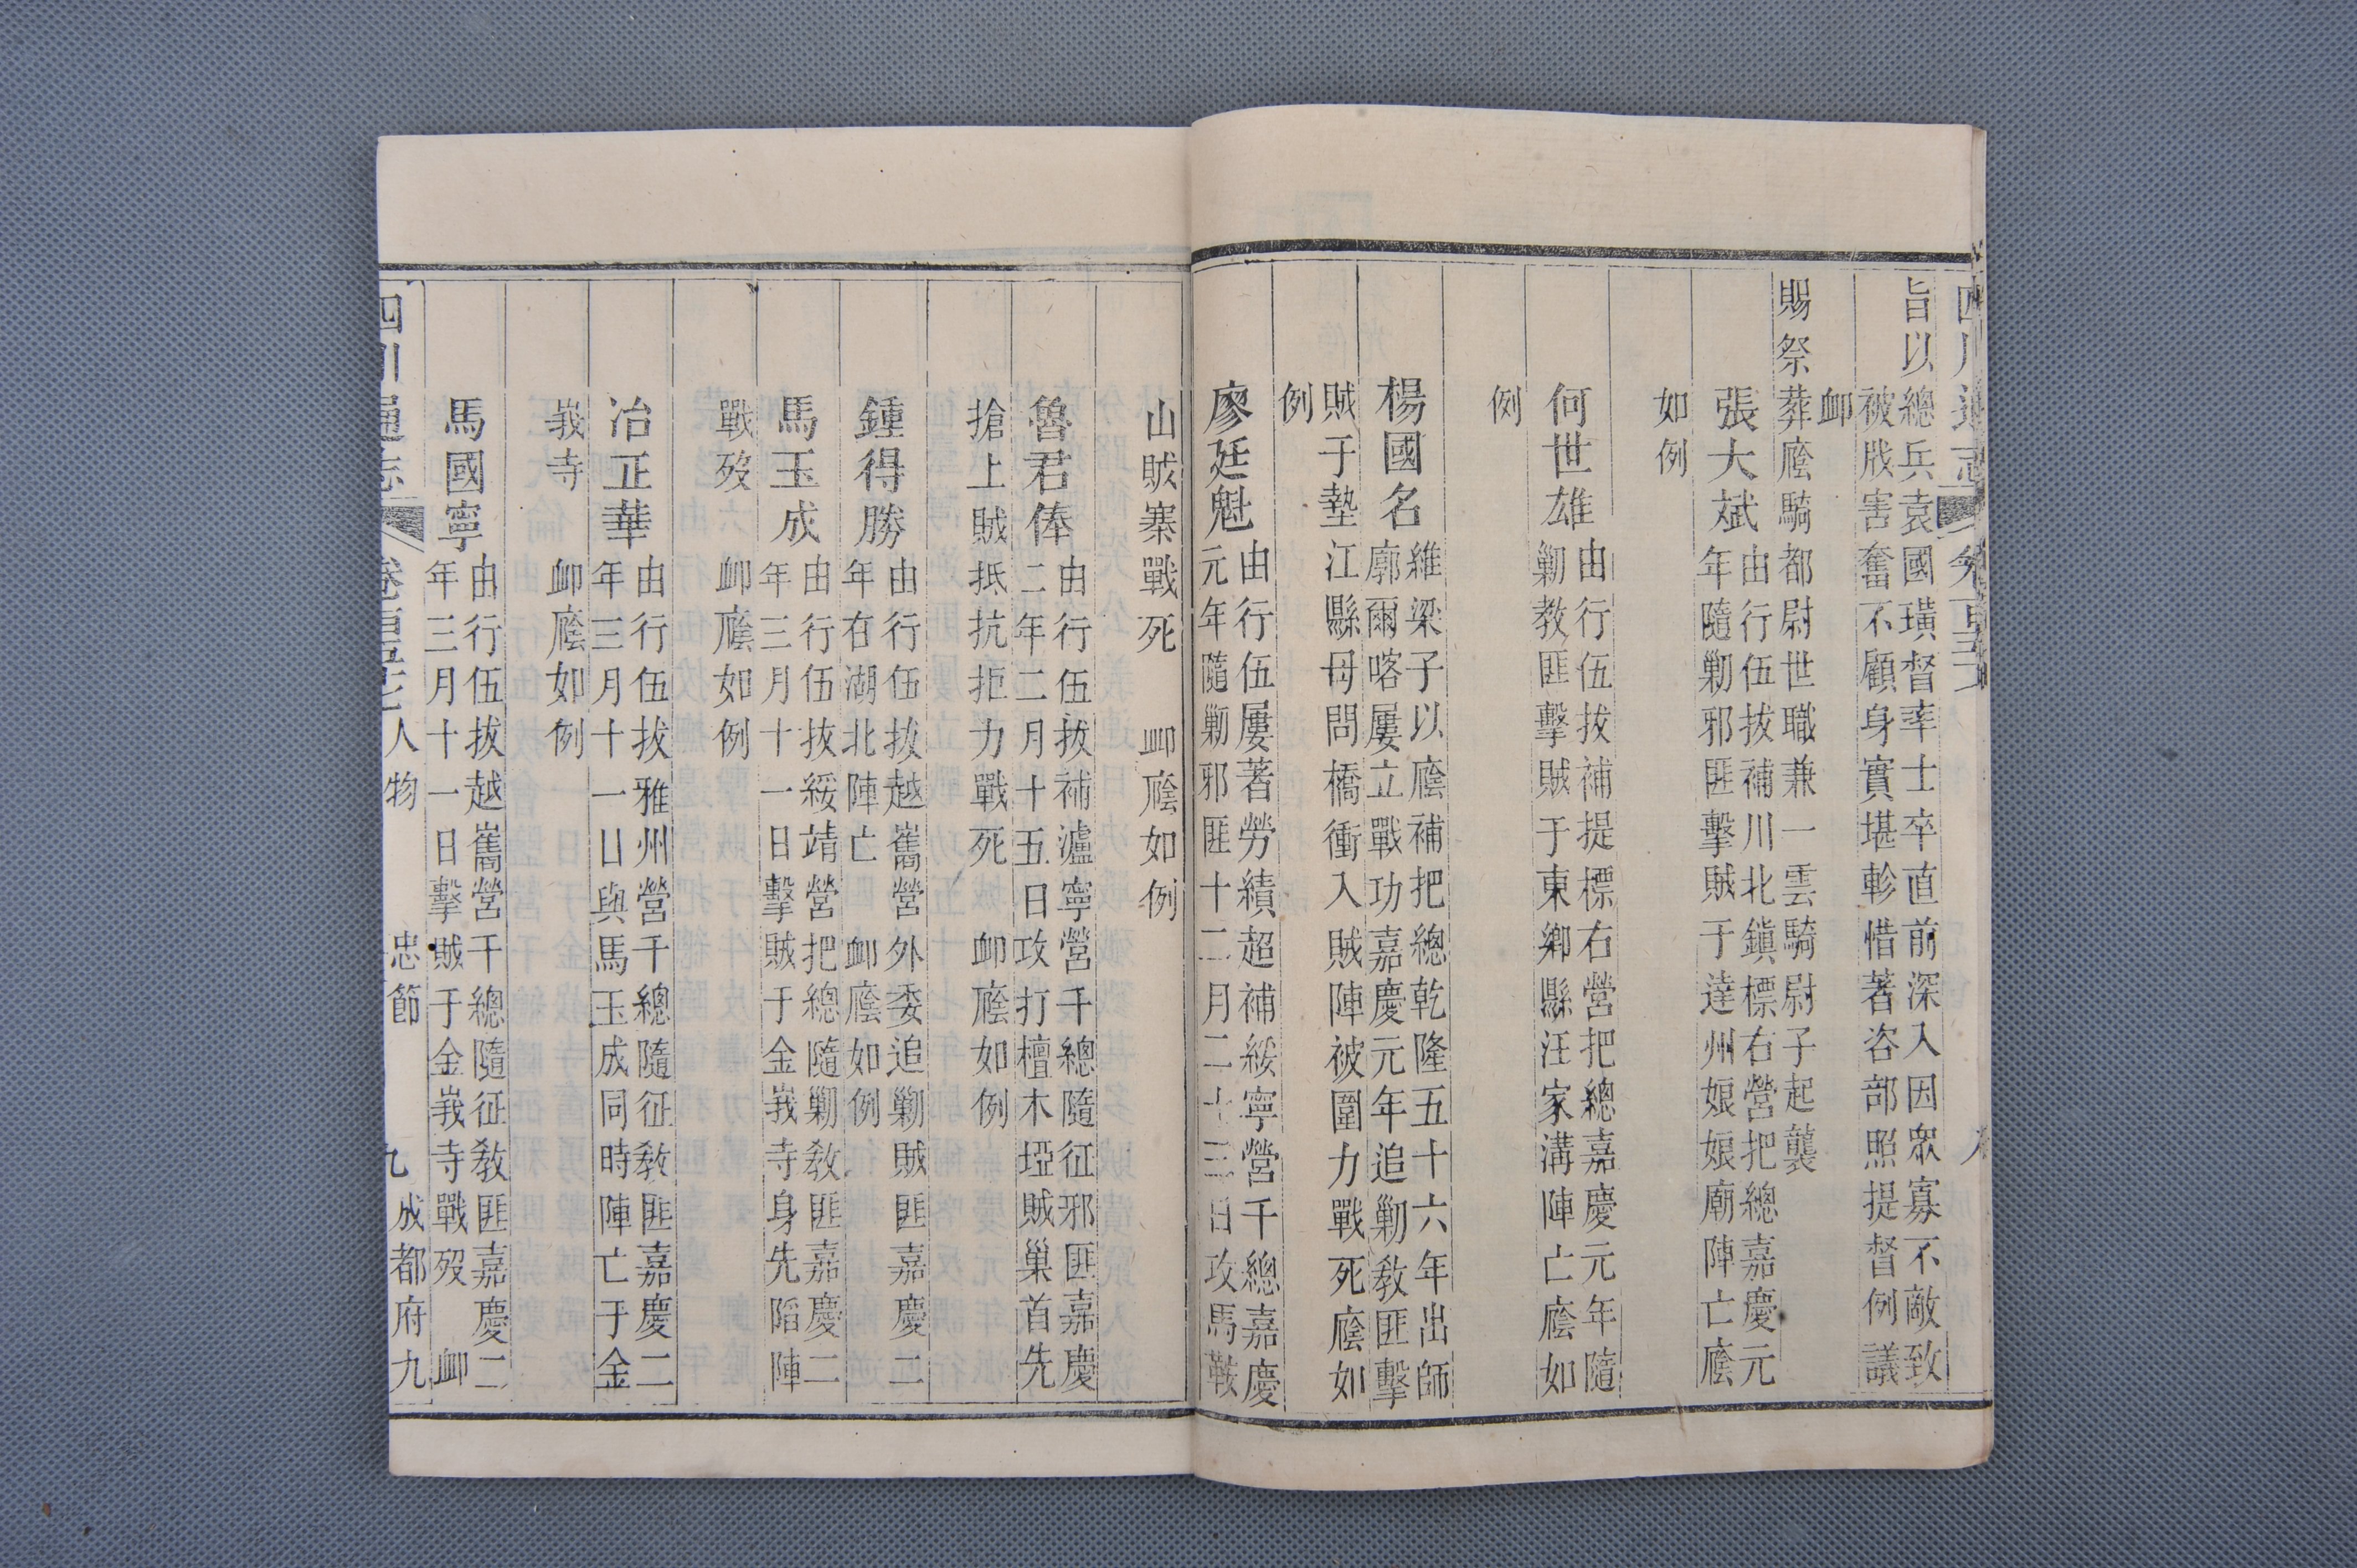 旨以總兵袁國璜督率士卒直前深入因眾寡不敵致
被戕害奮不顧身實堪軫惜著咨部照提督例議
卹
賜祭葬廕騎都尉世職兼一雲騎尉子起襲
張大斌
由行伍拔補川北鎮標右營把總嘉慶元
年隨勦邪匪擊賊于達州娘娘廟陣亡廕
如例
何世雄
由行伍拔補提標右營把總嘉慶元年隨
勦教匪擊賊于東鄉縣汪家溝陣亡廕如
例
楊國名
維梁子以廕補把總乾隆五十六年出師
廓爾喀屢立戰功嘉慶元年追勦教匪擊
賊于墊江縣母問橋衝入賊陣被圍力戰死廕如
例
廖廷魁
由行伍屢著勞績超補綏寧營千總嘉慶
元年隨勦邪匪十二月二十三日攻馬鞍
山賊寨戰死 卹廕如例
魯君俸
由行伍拔補瀘寧營千總隨征邪匪嘉慶
二年二月十五日攻打檀木埡賊巢首先
搶上賊抵抗拒力戰死 卹廕如例
鍾得勝
由行伍拔越嶲營外委追勦賊匪嘉慶二
年在湖北陣亡 卹廕如例
馬玉成
由行伍拔綏靖營把總隨勦教匪嘉慶二
年三月十一日擊賊于金峩寺身先陷陣
戰歿 卹廕如例
冶正華
由行伍拔雅州營千總隨征教匪嘉慶二
年三月十一日與馬玉成同時陣亡于金
峩寺 卹廕如例
馬國寧
由行伍拔越嶲營千總隨征教匪嘉慶二
年三月十一日擊賊于金峩寺戰歿 卹
四川通志 人物 忠節 九 成都府九